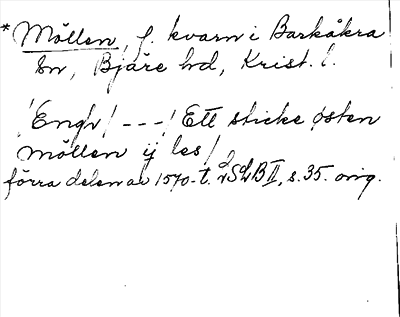 * Möllen, f. kvarn i Barkåkra
sn, Bjäre hd, Krist. l.
/Engh/ ---/ Ett sticke østen
möllen ij les/
förra delen av 1570-t. SkB II, s. 35. orig.